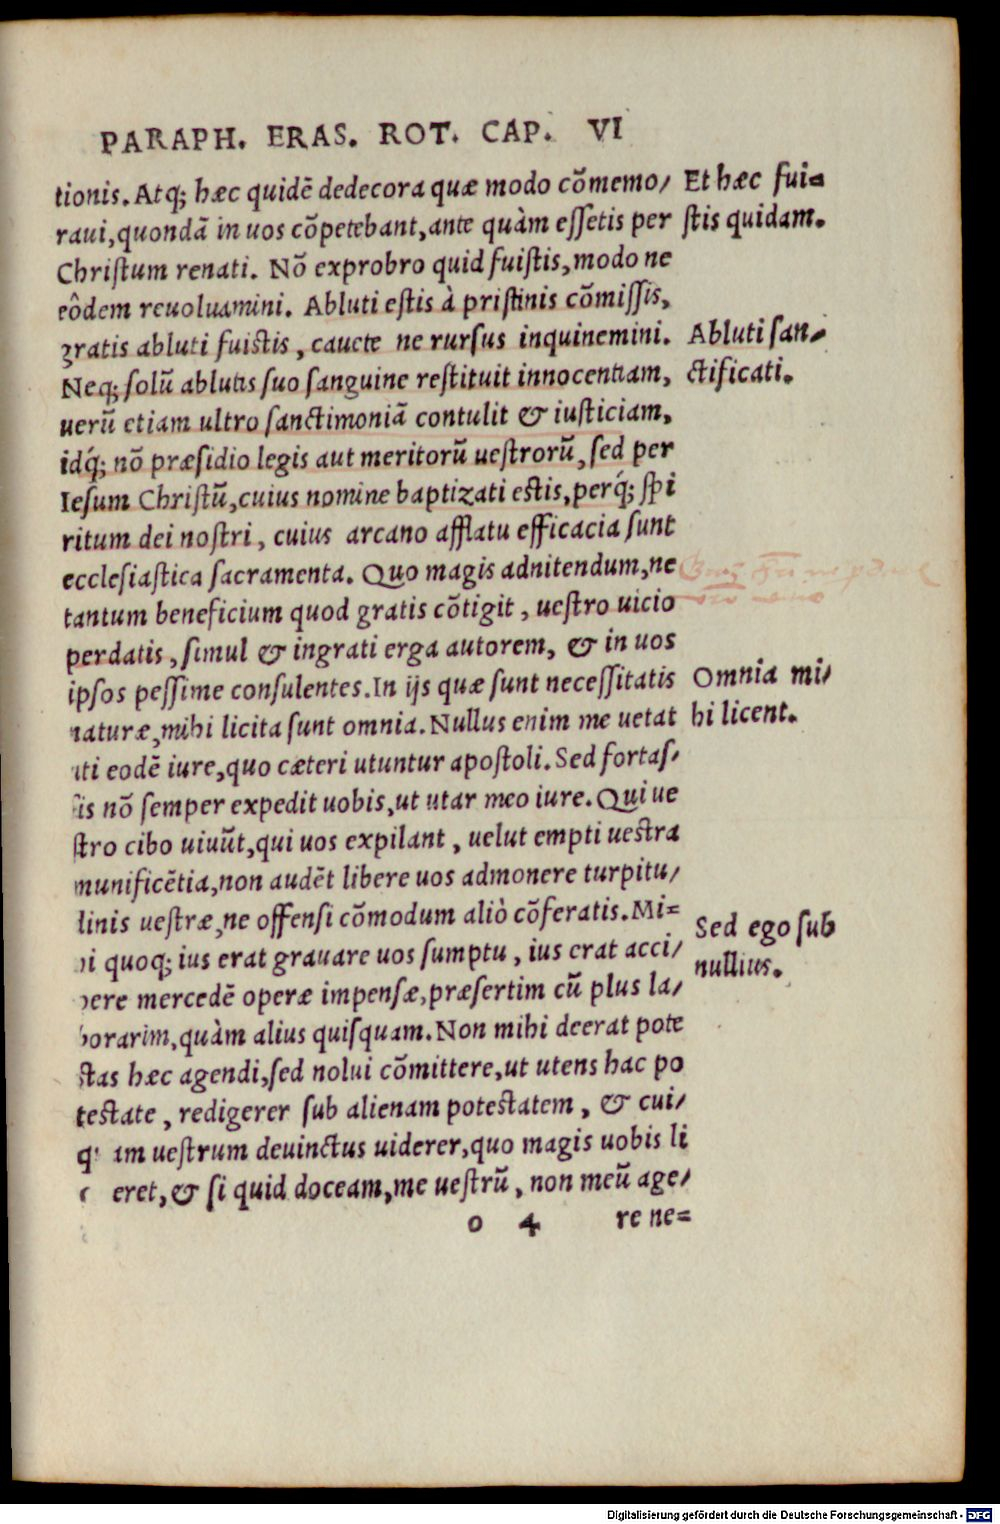 PARAPH. ERAS. ROT. CAP. VI
tionis. Atq; hæc quidē dedecora quæ modo cōmemo/
raui, quondā in uos cōpetebant, ante quàm eſſetis per
Chriſtum renati. Nō exprobro quid fuiſtis, modo ne
eôdem reuoluamini. Abluti eſtis à priſtinis cōmiſſis,
gratis abluti fuiſtis, cauete ne rurſus inquinemini.
Neq; ſolū ablutis ſuo ſanguine reſtituit innocentiam,
uerū etiam ultro ſanctimoniā contulit & iuſticiam,
idq́; nō præſidio legis aut meritorū ueſtrorū, ſed per
Ieſum Chriſtū, cuius nomine baptizati eſtis, perq́; ſpi
ritum dei noſtri, cuius arcano afflatu efficacia ſunt
eccleſiaſtica ſacramenta. Quo magis adnitendum, ne
tantum beneficium quod gratis cōtigit, ueſtro uicio
perdatis, ſimul & ingrati erga autorem, & in uos
ipſos peſſime conſulentes. In ijs quæ ſunt neceſſitatis
naturæ, mihi licita ſunt omnia. Nullus enim me uetat
uti eodē iure, quo cæteri utuntur apoſtoli. Sed fortaſ/
ſis nō ſemper expedit uobis, ut utar meo iure. Qui ue
ſtro cibo uiuūt, qui uos expilant, uelut empti ueſtra
munificētia, non audēt libere uos admonere turpitu/
dinis ueſtræ, ne offenſi cōmodum aliò cōferatis. Mi=
hi quoq; ius erat grauare uos ſumptu, ius erat acci/
pere mercedē operæ impenſæ, præſertim cū plus la/
borarim, quàm alius quiſquam. Non mihi deerat pote
ſtas hæc agendi, ſed nolui cōmittere, ut utens hac po
teſtate, redigerer ſub alienam poteſtatem, & cui/
quam ueſtrum deuinctus uiderer, quo magis uobis li
eret, & ſi quid doceam, me ueſtrū, non meū age/
o 4 re ne=
Et hæc fui=
ſtis quidam.
Abluti ſan/
ctificati.
Omnia mi/
hi licent.
Sed ego ſub
nullius.
Digitalisierung gefördert durch die Deutsche Forschungsgemeinschaft - DFG